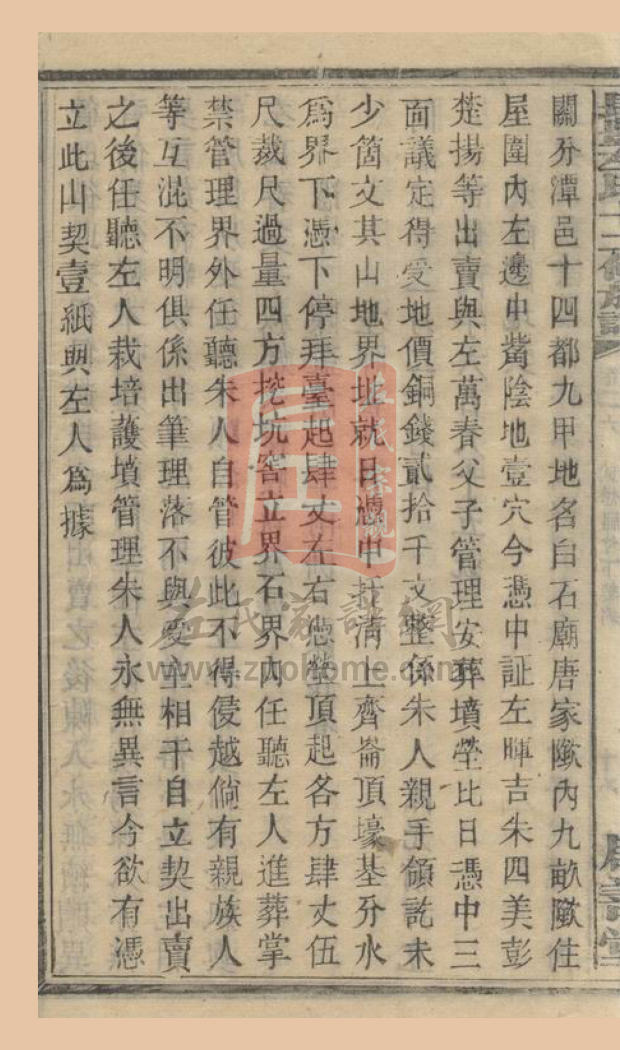 關分潭邑十四都九甲地名白石廟唐家隩內九畝隩住
屋圍內左邊中嘴陰地壹穴今憑中証左暉吉朱四美彭
楚揚等出賣與左萬春父子管理安葬墳塋比日憑中三
面議定得受地價銅錢貳拾千文整係朱人親手領訖未
少箇文其山地界址就日憑中扦清上齊崙頂壕基分水
為界下憑下停拜臺起肆丈左右憑塋頂起各方肆丈伍
尺裁尺過量四方挖坑窖立界石界內任聽左人進葬掌
禁管理界外任聽朱人自管彼此不得侵越倘有親族人
等互混不明俱係出筆理落不與受主相干自立契出賣
之後任聽左人栽培護墳管理朱人永無異言今欲有憑
立此山契壹紙與左人為據
左氏家譜網
www.zupohome.com